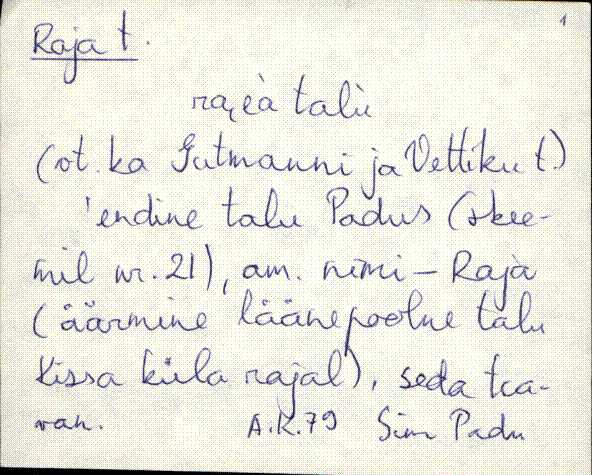 1
Raja t.
ra,eà talù
(vt. ka Gutmanni ja Vettiku t.)
'endine talu Padus (skee-
mil nr. 21), am. nimi – Raja
(äärmine läänepoolne talu
Kissa küla rajal), seda tea-
vah.
A.K.79 Sim Padu